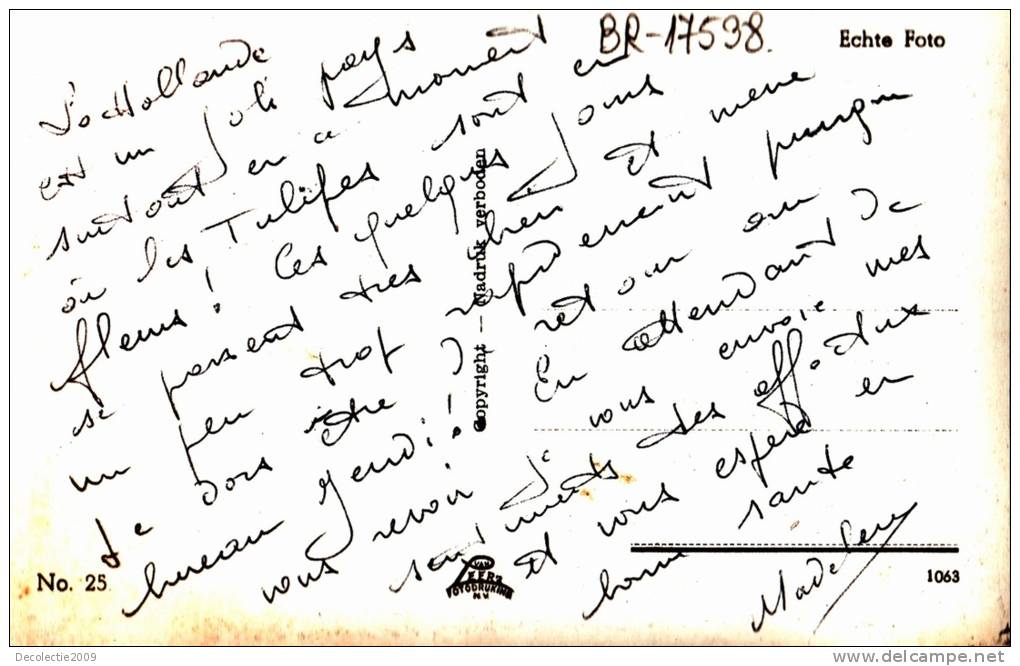 BR-17538.
Echte Foto
La Hollande
est un joli pays
surtout en ce moment
où les Tulipes sont en
fleurs! Ces quelques jours
se passent très bien et même
un peu trop rapidement puisque
je dois être de retour au
bureau Jeudi! En attendant de
vous revoir je vous envoie mes
sentiments les affectueux
et vous espère en
bonne santé
Madeleine
Copyright — Nadruk verboden
No. 25
VAN
LEER'S
FOTODRUKIND
N.V.
1063
Decolectie2009
http://www.delcampe.net